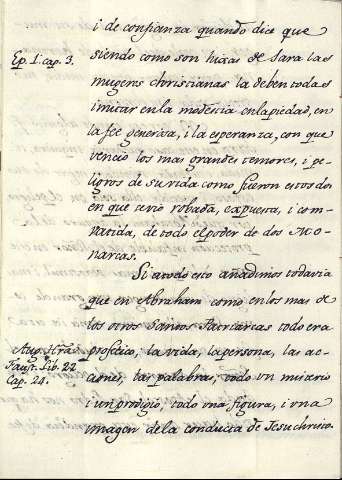 i de confianza quando dice que
Ep. I. cap. 3.
siendo como son hijas de Sara las
mugeres christianas la deben todas
imitar en la modestia en la piedad, en
la fee generosa, i la esperanza, con que
vencio los mas grandes temores, i pe-
ligros de su vida como fueron estos dos
en que se vio robada, expuesta, i com-
vatida, de todo el poder de dos Mo-
narcas.
Si a todo esto añadimos todavia
que en Abraham como en los mas de
los otros Santos Patriarcas todo era
Aug.
profetico, la vida, la persona, las ac-
Faust. Lib. 22
ciones, las palabras, todo un misterio
Cap. 24.
i un prodigio, todo una figura, i una
imagen de la conducta de Jesuchristo.